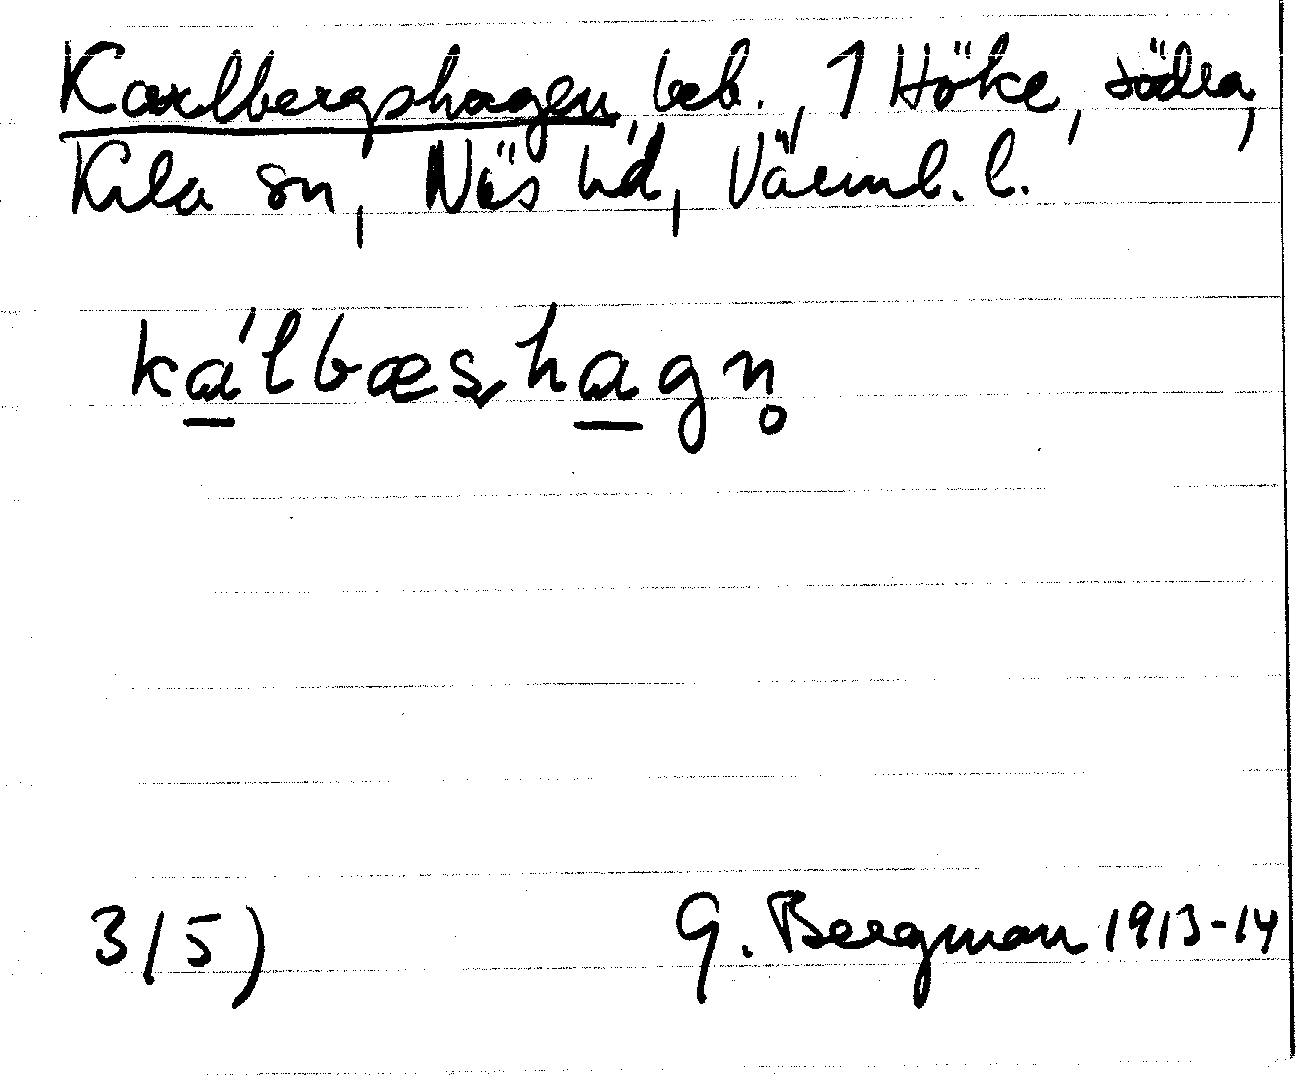 Karlbergshagen, beb., 1 Höke, södra,
Kila sn, Näs hd, Värml. l.
ká̲lbæsha̲gn̥
3/5) G. Bergman 1913-14